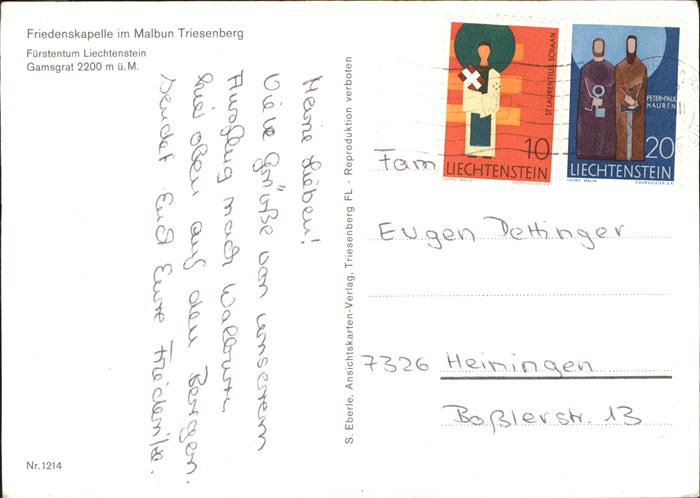 Friedenskapelle im Malbun Triesenberg
Fürstentum Liechtenstein
Gamsgrat 2200 m ü.M.
Meine Lieben!
Viele Grüße von unserem
Ausflug nach Walbun.
hier oben auf den Bergen.
sendet Euch Eure Friederike.
Nr.1214
S. Eberle, Ansichtskarten-Verlag, Triesenberg FL - Reproduktion verboten
ST LAURENTIUS SCHAAN
10
LIECHTENSTEIN
GEORG MALIN COURVOISIER S.A.
PETER+PAUL
MAUREN
20
LIECHTENSTEIN
GEORG MALIN COURVOISIER S.A.
Fam
Eugen Dettinger
7326 Heiningen
Boßlerstr. 13